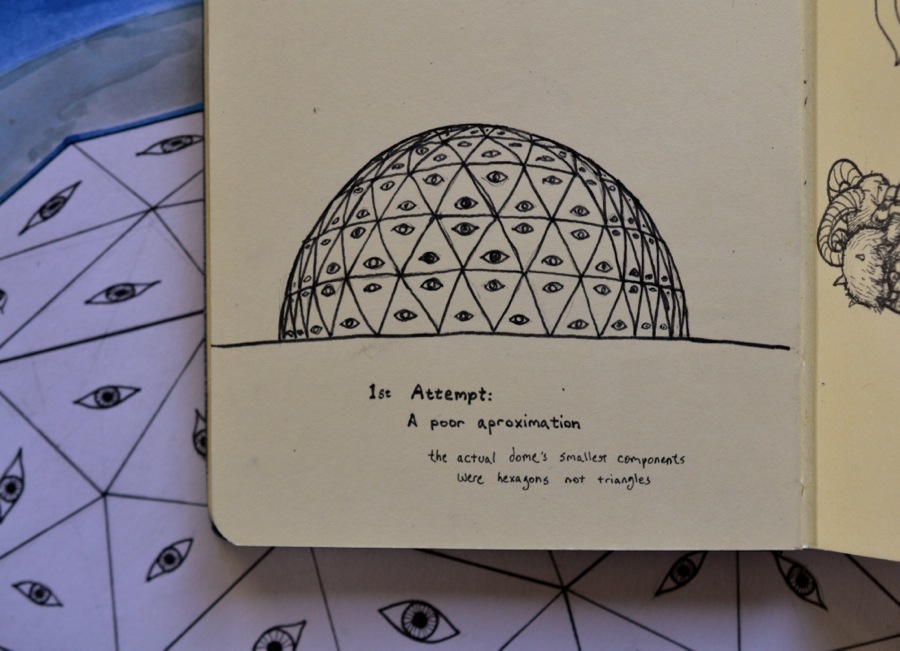 1st Attempt:
A poor aproximation
the actual dome's smallest components
were hexagons not triangles